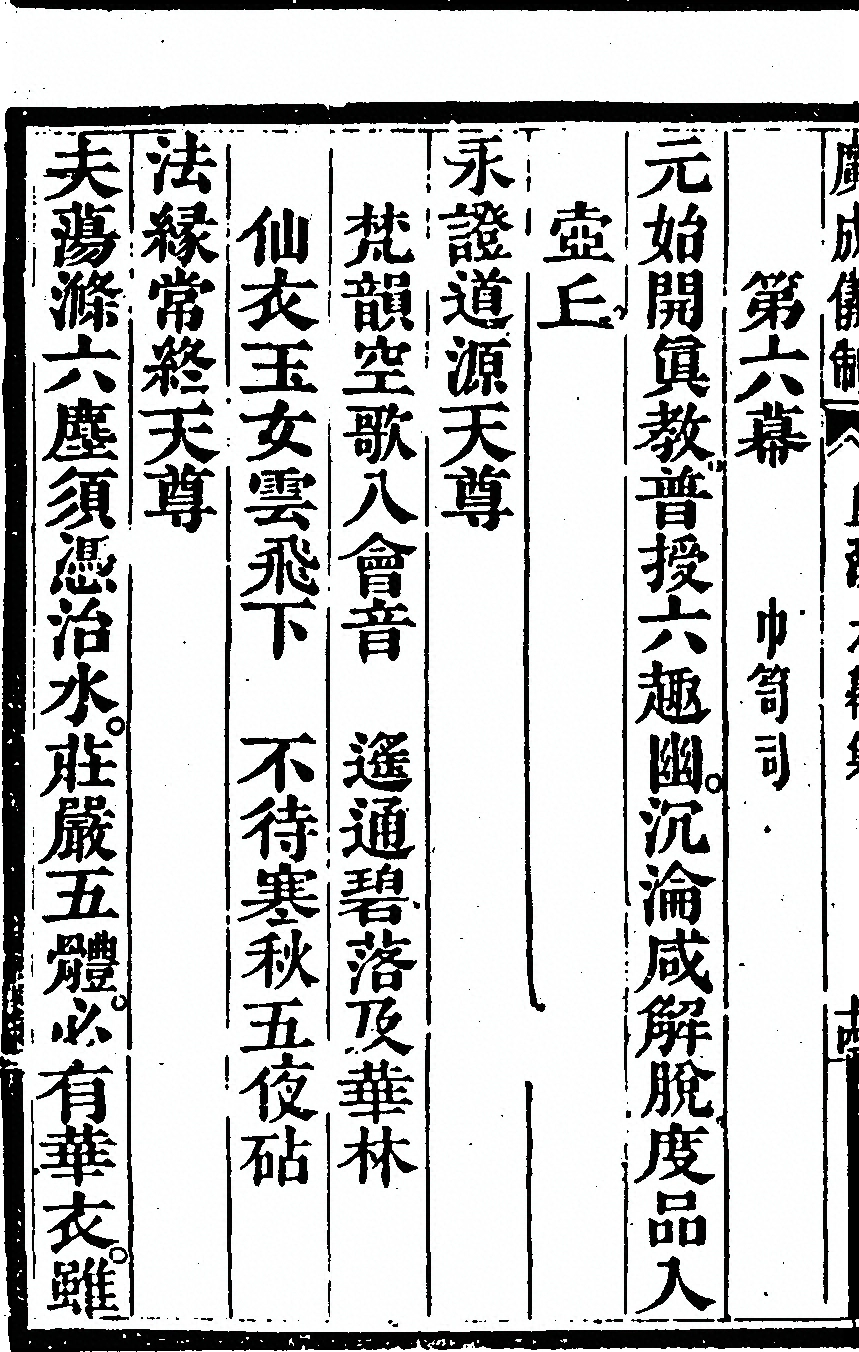 廣成儀制
十四
第六幕　巾笥司
元始開眞教普授六趣幽。沉淪咸解脫度品入
壺丘
永證道源天尊
梵韻空歌八會音　遙通碧落及華林
仙衣玉女雲飛下　不待寒秋五夜砧
法縁常終天尊
夫蕩滌六塵須憑治水。莊嚴五體。必有華衣。雖